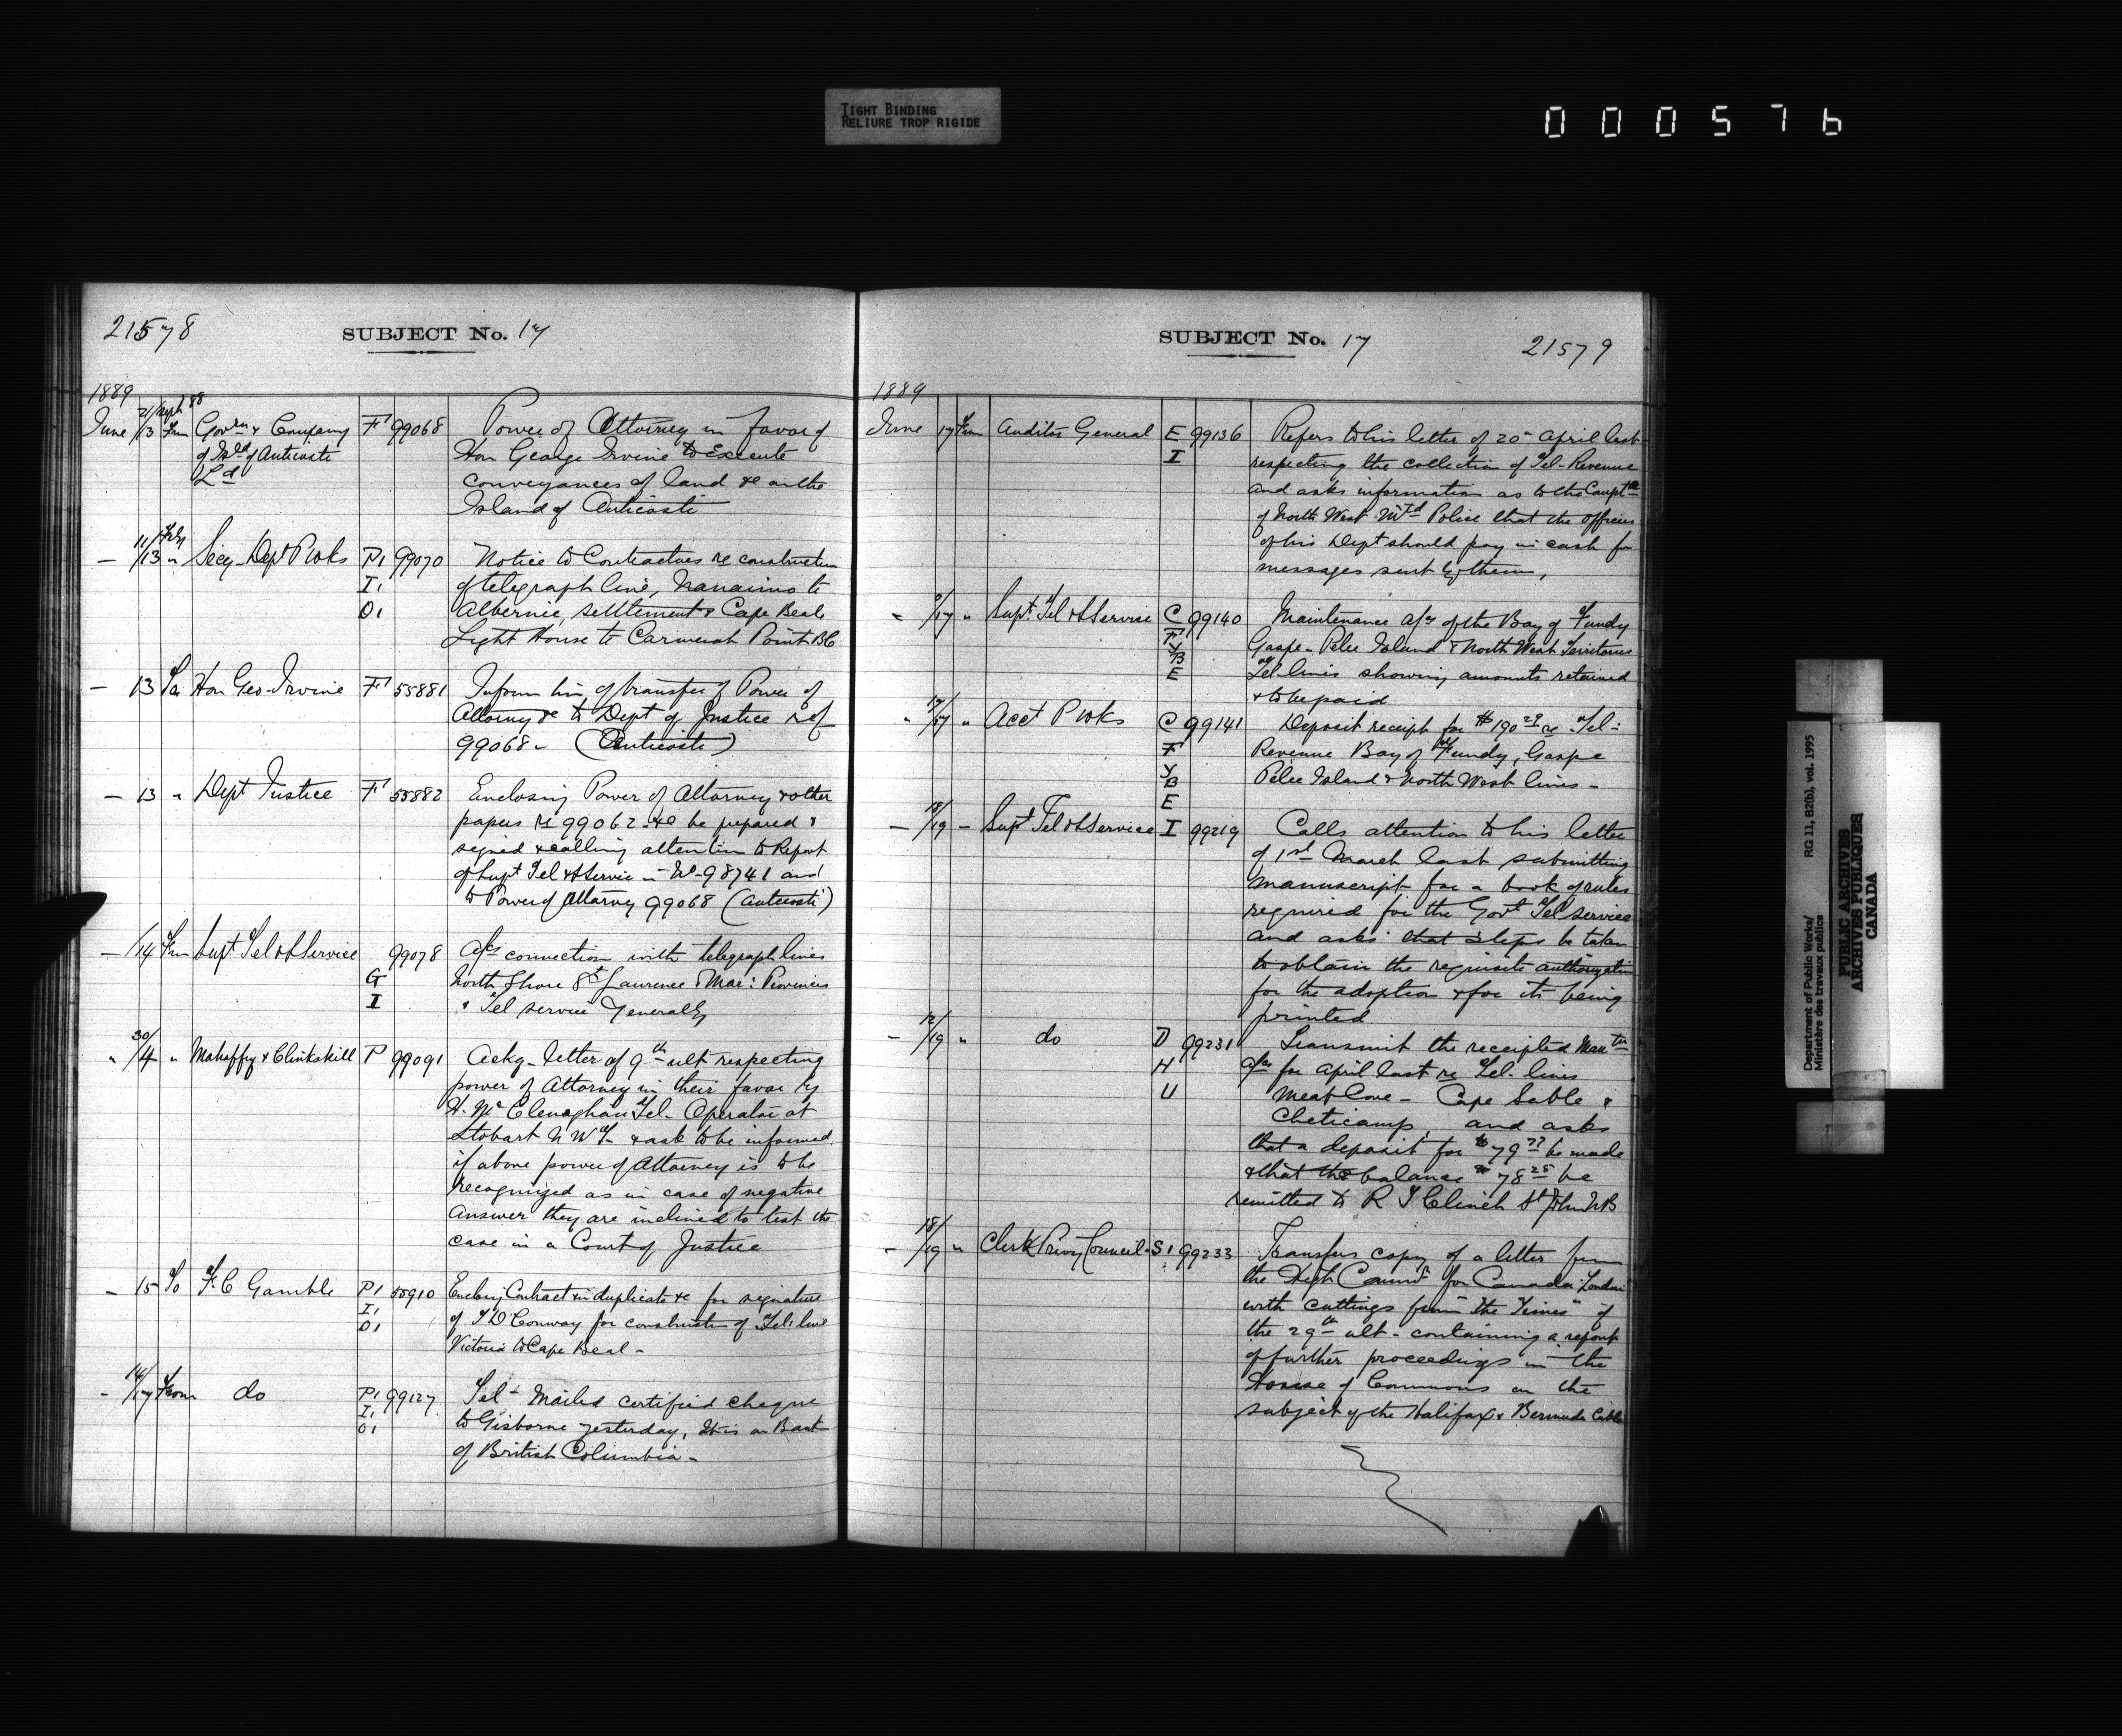 TIGHT BINDING
RELIURE TROP RIGIDE
000576
21578
SUBJECT No. 17
1889
21/Sept 88
June 13 From Govrn & Company F 99068 Power of Attorney in favor of
of Isld of Anticosti Hon George Irvine to Execute
Ld conveyances of land &c on the
Island of Anticosti
11/
— /13 " Secy Dept P Wks P1 99070 Notice to Contractors re construction
I1 of telegraph line, Nanaimo to
O1 Albernie, settlement & Cape Beale
Light House to Carmenah Point BC
— 13 To Hon Geo Irvine F 55881 Inform him of transfer of Power of
Attorney &c to Dept of Justice ref
99068 - (Anticosti)
— 13 " Dept Justice F 55882 Enclosing Power of Attorney & other
papers re 99062 to be prepared &
signed & calling attention to Report
of Supt Tel & S Service in No 98741 and
to Power of Attorney 99068 (Anticosti)
— /14 From Supt Tel & S Service 99078 A/cs connection with telegraph lines
G North Shore St Laurence & Mar: Provinces
I & Tel service Generally
30/
" /4 " Mahaffy & Clinkskill P 99091 Ackg letter of 9th ult respecting
power of Attorney in their favor by
H. McClenaghan Tel. Operator at
Stobart N W T - & ask to be informed
if above power of Attorney is to be
recognized as in case of negative
answer they are inclined to test the
case in a Court of Justice
- 15 To F. C Gamble P1 55910 Enclosg Contract in duplicate &c for signature
I1 of J D Conway for construction of Tel: line
O1 Victoria to Cape Beal -
14/
- /17 From do P1 99127 Tel - Mailed certified cheque
I1 to Gisborne yesterday, It is on Bank
O1 of British Columbia -
SUBJECT No. 17
21579
1889
June 17 From Auditor General E 99136 Refers to his letter of 20th April last
I respecting the collection of Tel- Revenue
and asks information as to the
of North West Mtd Police that the officers
of his Dept should pay in cash for
messages sent by them,
- /17 " Supt Tel & S Service C 99140 Maintenance a/cs of the Bay of Fundy
F Gaspe - Pelee Island & North West Territories
Y
B
E Tel- lines showing amounts retained
& to be paid
17/
" /17 " Acct P Wks C 99141 Deposit receipt for $190 29 re Tel-
F Revenue Bay of Fundy, Gaspe
Y
B Pelee Island & North West lines -
E
18/
— /19 - Supt Tel & S Service I 99219 Calls attention to his letter
of 1st March last submitting
manuscript for a book of rules
required for the Govt Tel service
and asks that steps be taken
to obtain the requisite authorization
for the adoption & for its being
printed
12/
- /19 " do D 99231 Transmit the receipted
H a/cs for April last re Tel- lines
U Meat Cove - Cape Sable &
Cheticamp, and asks
that a deposit for $79 77 be made
& that the balance $78 25 be
remitted to R T Clinch St John NB
18/
- /19 " Clerk Privy Council S1 99233 Transfers copy of a letter from
the High Commr for Canada London
with cuttings from "the Times" of
the 29th ult - containing a report
of further proceedings in the
House of Commons on the
subject of the Halifax & Bermuda Cable
Department of Public Works/ RG 11, B2(b), vol. 1995
Ministère des travaux publics
PUBLIC ARCHIVES
ARCHIVES PUBLIQUES
CANADA